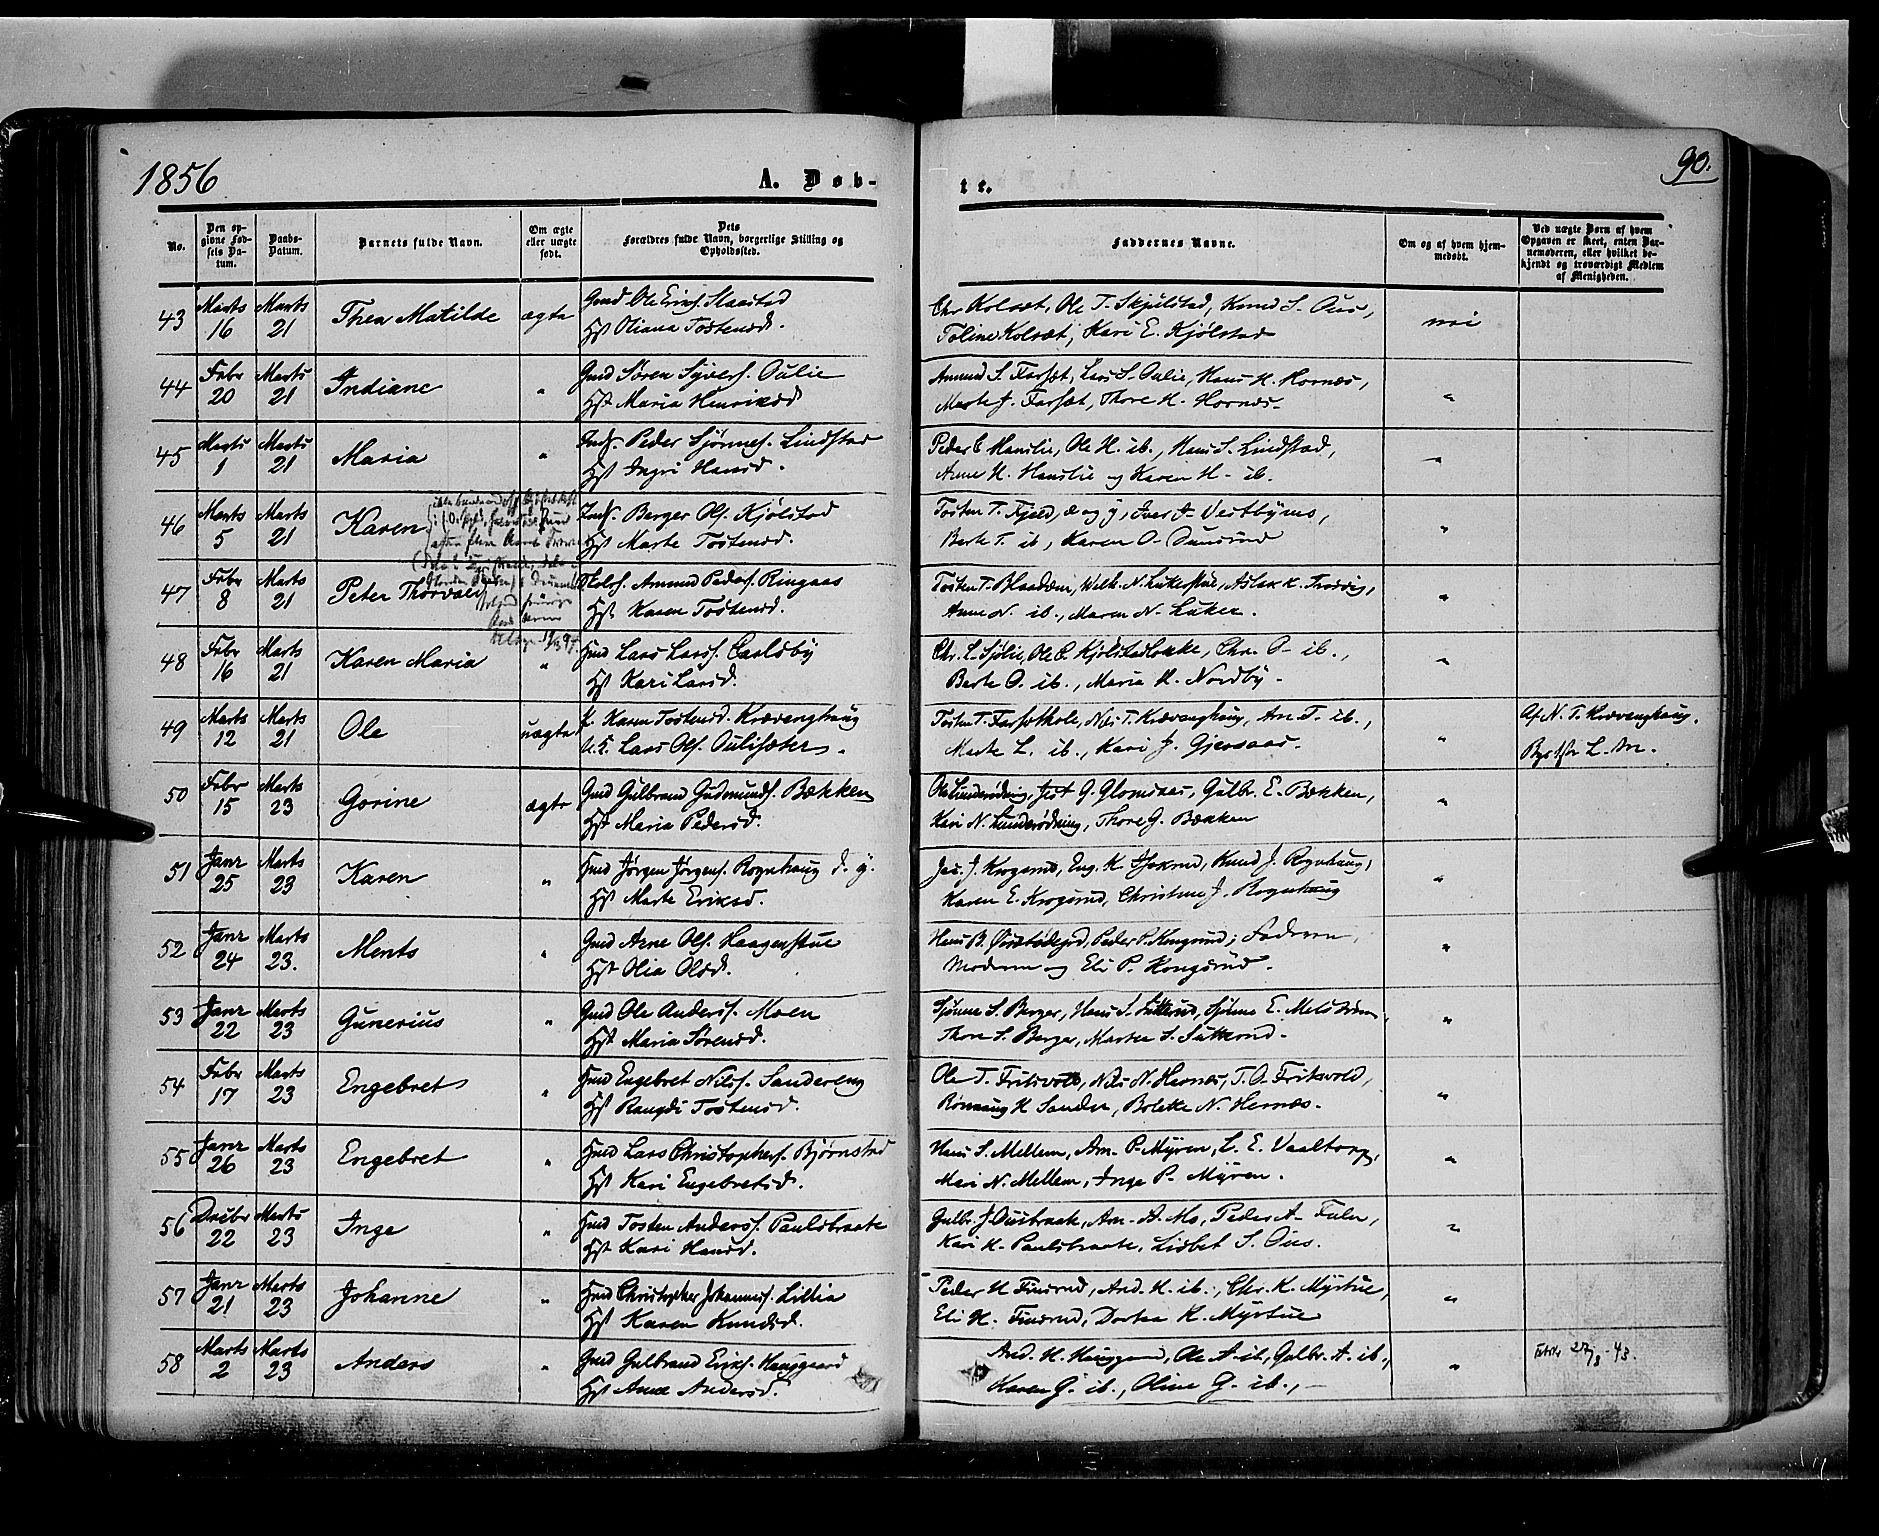 1856
A. Døb-
te.
90.
No.
Den op-
givne Fød-
sels Da-
tum.
Daabs-
Datum.
Barnets fulde Navn.
Om ægte
eller uægte
født.
Dets
Forældres fulde Navn, borgerlige Stilling og
Opholdssted.
Faddernes Navne.
Om og af hvem hjem-
medøbt.
Ved uægte Børn af hvem
Opgaven er skeet, enten Bar-
nemoderen, eller hvilket be-
kjendt og troværdigt Medlem
af Menigheden.
43 Marts 16 Marts 21 Thea Matilde ægte Gmd Ole Eriks. Staastad
Hst Oliana Tostensd.
Chr Kolsæt, Ole T. Skjulstad, Knud S. Ous,
Toline Kolsæt, Kari E. Kjølstad
nei
44 Febr 20 Marts 21 Indiane " Gmd Søren Syvers. Oulie
Hst Maria Henriksd
Amund S. Farsæt, Lars S. Oulie, Hans H. Hornæs,
Marte J. Farsæt, Thore H. Hornæs.
"
45 Marts 1 Marts 21 Maria " Inds. Peder Sjønnes. Lindstad
Hst Ingri Hansd.
Peder E Hanslie, Ole H. ib., Hans S. Lindstad,
Anne H. Hanslie og Karen H. ib.
"
46 Marts 5 Marts 21 Karen Inds. Berger Ols. Kjølstad
Hst Marte Tostensd.
Tosten T. Fjeld, æ og y, Iver J. Vestbyms,
Berte T. ib, Karen O.
"
47 Febr 8 Marts 21 Peter Thorvald Amund Peders. Ringaas
Hst Karen Tostensd.
Tosten T. N. Aslak K.
Anne N. ib., Maren N. Luken.
"
48 Febr 16 Marts 21 Karen Maria " Hmd Lars Larss. Carlsby
Hst Kari Larsd.
Chr. L. Sjølie, Ole O. Kjølstadløkke, Chr. O. ib.,
Berte O. ib., Maria H. Nordby.
"
49 Marts 12 Marts 21 Ole uægte P. Karen Tostensd. Krævenghaug
U. K. Lars Ols. Oulisæter.
Tosten T. Farsæthole, Nils T. Krævenghaug, An. T. ib.,
Marte L. ib., Kari J. Gjersaas.
"
Af N. T. Krævenghaug.
50 Febr 15 Marts 23 Gorine ægte Gmd Gulbrand Gudmunds. Bækken
Hst Maria Pedersd.
Ole Lunderødning, G. Glomsaas, Gulbr. E. Bækken,
Kari N. Lunderødning, Thore G. Bækken
"
51 Janr 25 Marts 23 Karen " Hmd Jørgen Jørgens. Rognhaug d. y.
Hst Marte Eriksd.
J. Krogsrud, Eng. K. Knud J. Rognhaug,
Karen E. Krogsrud, Christine J. Rognhaug
"
52 Janr 24 Marts 23. Ments " Gmd Arne Ols. Haagenstue
Hst Olia Olsd.
Hans B. Peder P. Kongsrud, Faderen,
Moderen og Eli P. Kongsrud.
"
53 Janr 22 Marts 23 Gunerius " Gmd Ole Anderss. Moen
Hst Maria Sørensd.
Sjønne S. Berger, Hans S. Sætterud, Sjønne E.
Thore S. Berger, Marten S. Sætterud.
"
54 Febr 17 Marts 23 Engebret " Hmd Engebret Nilss. Sandereng
Hst Rangdi Tostensd.
Ole T. Fritsvold, Nils N. Hernæs, T. O. Fritsvold,
Rønnaug H Sander, Bolette N. Hernæs.
"
55 Janr 26 Marts 23 Engebret " Hmd Lars Christophers. Bjørnstad
Hst Kari Engebretsd.
Hans S. Mellem, Am. P. Myren, L. E. Vaaltorp,
Mari N. Mellem, Inge P. Myren.
"
56 Decbr 22 Marts 23 Inge " Hmd Tosten Anderss. Paulsbraate
Hst Kari Hansd.
Gulbr. J. Ousbraate, Am. A. Mo, Peder A.
Kari H. Paulsbraate, Lisbet S. Ous.
"
57 Janr 21 Marts 23 Johanne " Hmd Christopher Johanness. Lillia
Hst Karen Knudsd.
Peder H Finsrud, And. H. ib., Chr. K. Myrstue,
Eli H. Finsrud, Dortea K. Myrstue
"
58 Marts 2 Marts 23 Anders " Gmd Gulbrand Eriks. Hauggaard
Hst Anne Andersd.
And. H. Hauggaard, Ole A. ib, Gulbr. A. ib.,
Karen G. ib., Oline G. ib.,
"
27/8 - 43.